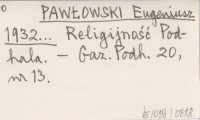 PAWŁOWSKI Eugeniusz
1932... Religijność Pod-
hala. – Gaz. Podh. 20,
nr 13.